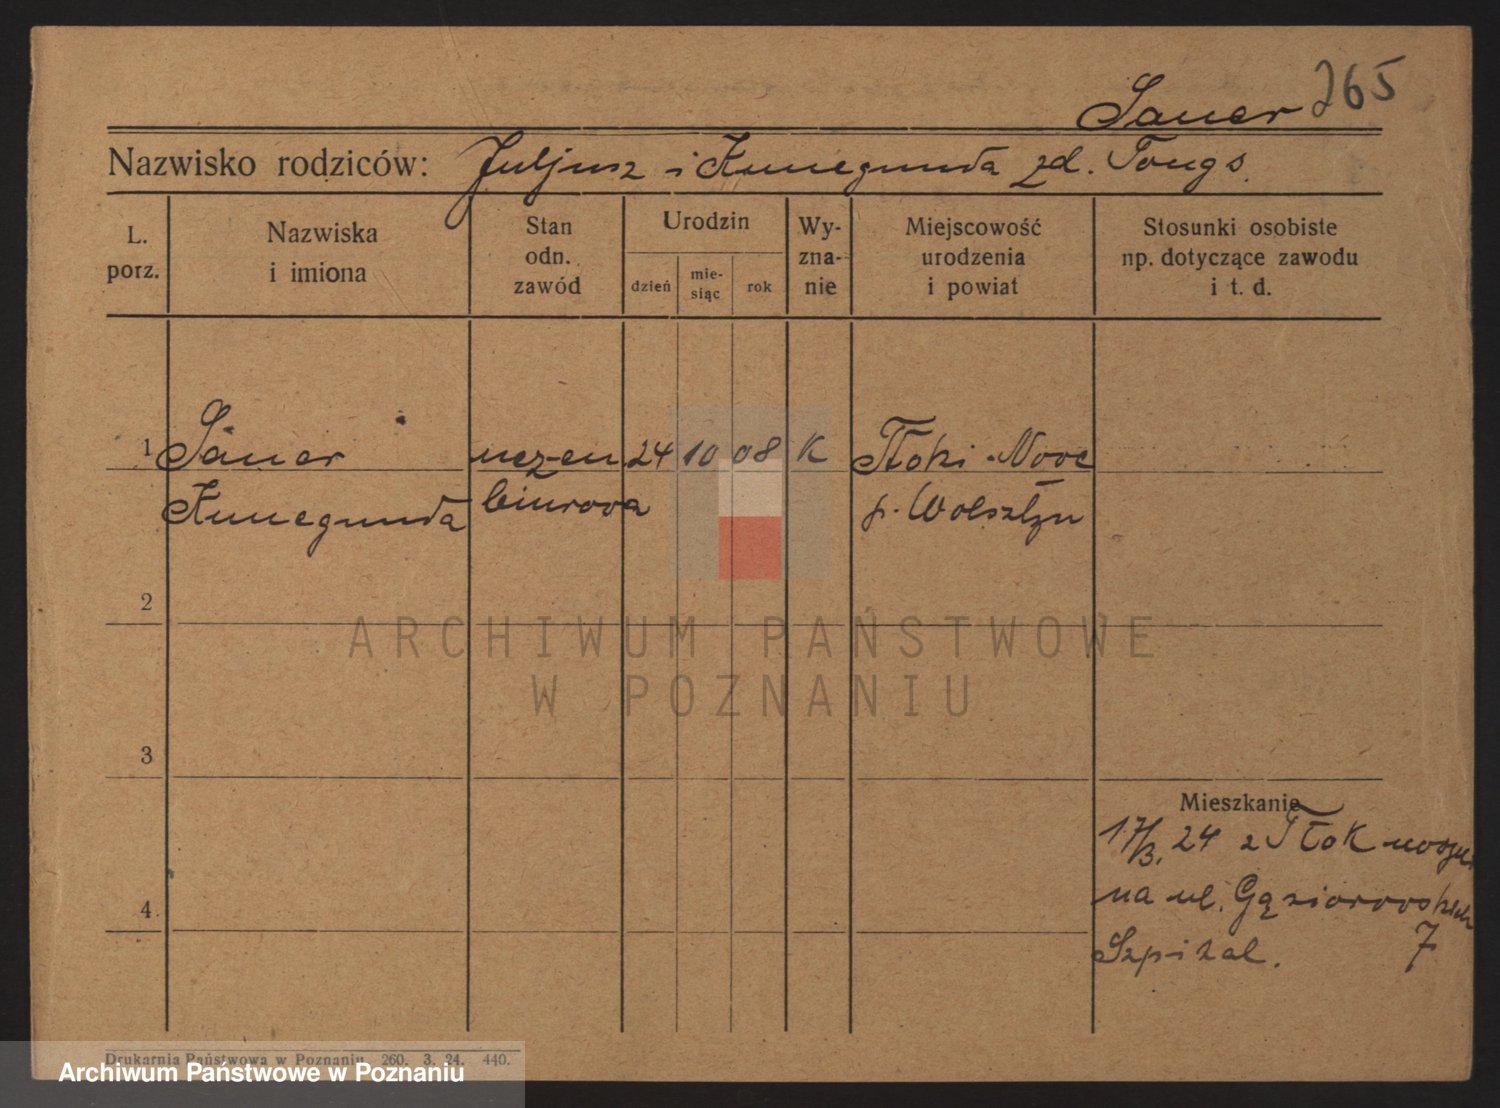 265
Sauer
Nazwisko rodziców: Juljusz i Kunegunda zd. Tongs.
L. porz.
Nazwiska i imiona
Stan odn. zawód
Urodzin
dzień
mie-siąc
rok
Wy-zna-nie
Miejscowość urodzenia i powiat
Stosunki osobiste np. dotyczące zawodu i t. d.
1 Sauer uczen 24 10 08 K Tłoki Nowe
Kunegunda biurowa p. Wolsztyn
2
3
4
Mieszkanie
17/3. 24 z Tłok
na ul. Gąsiorowskich
Szpital. 7
ARCHIWUM PAŃSTWOWE
W POZNANIU
Drukarnia Państwowa w Poznaniu 260. 3. 24. 440.
Archiwum Państwowe w Poznaniu